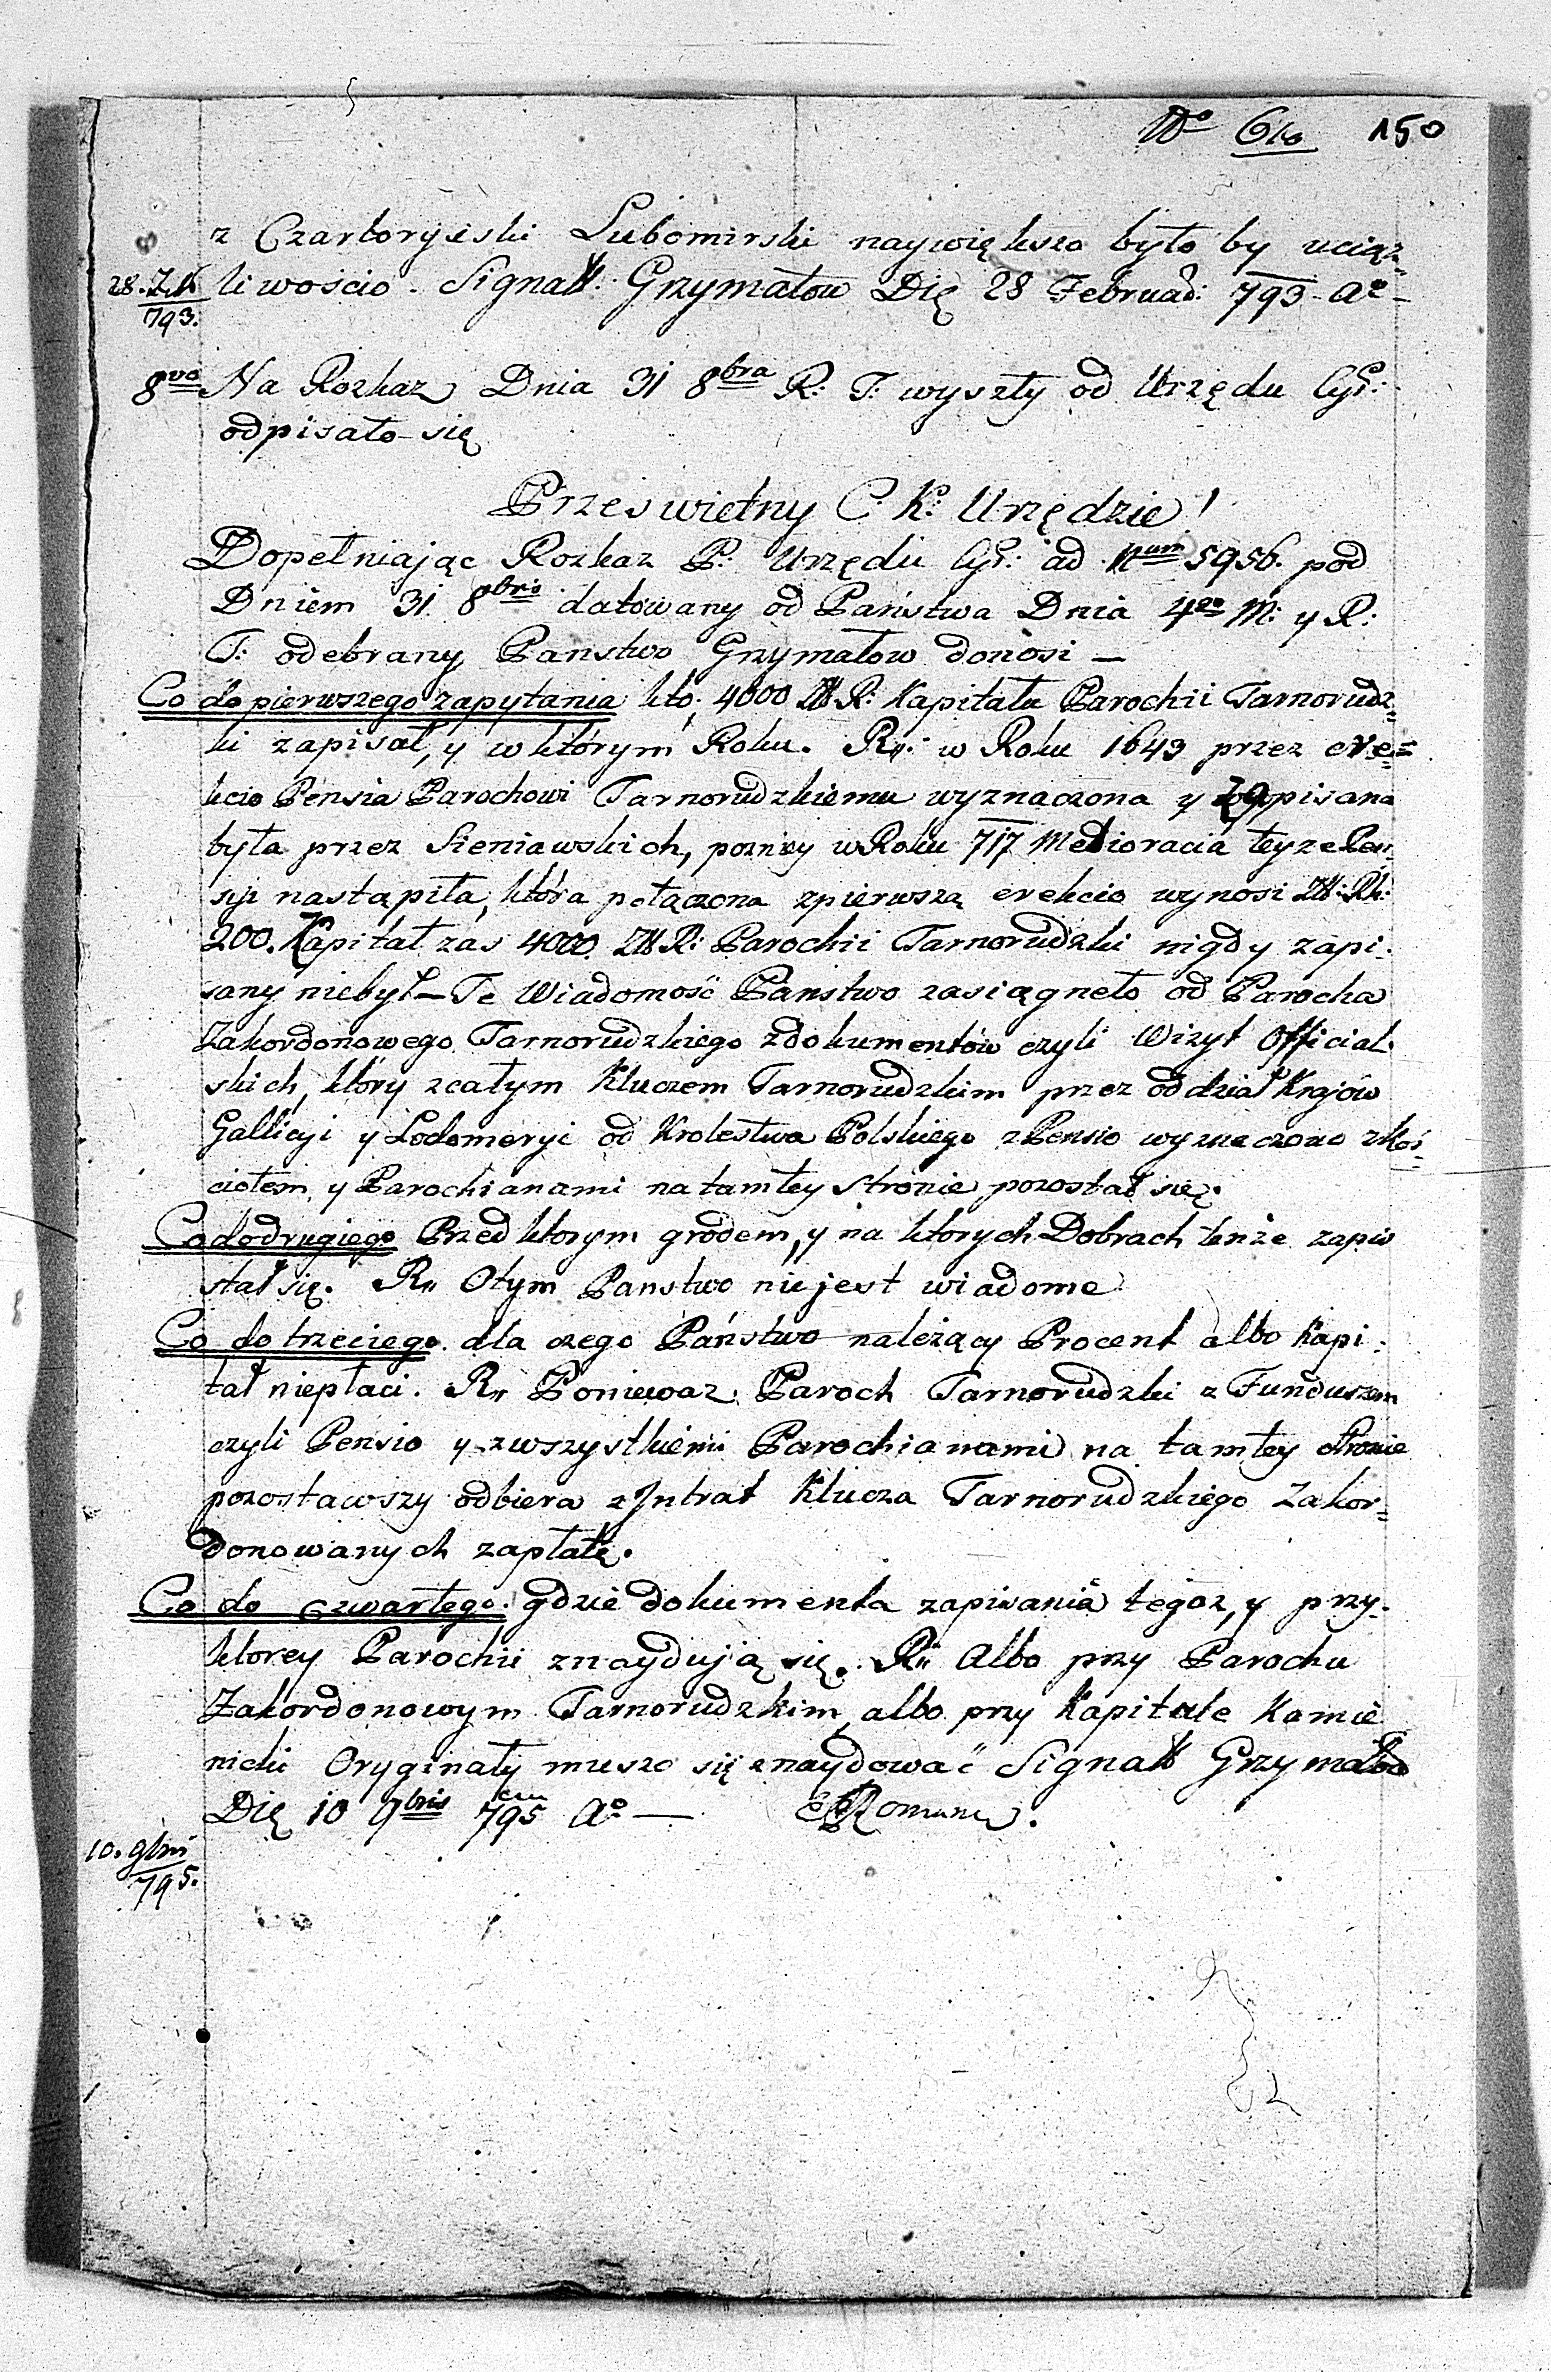 Do 6to 150
z Czartoryiski Lubomirski naywiększa było by uciąż=
28. Feb. / 793. liwościo. Signatt: Grzymałow Dię 28 Februar: 793. Ao
8vo Na Rozkaz Dnia 31 8bra R: T: wyszły od Urzędu Cyr:
odpisało się
Przeswietny C. K. Urzędzie!
Dopełniając Rozkaz P: Urzędu Cyr: ad Num 5956. pod
Dniem 31. 8bris datowany od Państwa Dnia 4go M: y R:
T: odebrany Panstwo Grzymałow donosi —
Co do pierwszego zapytania kto. 4000 ZłR: Kapitału Parochii Tarnorudz=
ki zapisał, y w którym Roku. R,,: w Roku 1643 przez ere=
kcio Pensia Parochowi Tarnorudzkiemu wyznaczona y zapisana
była przez Sieniawskich, pozniey w Roku 717 Melioracia teyze Pen=
syi nastąpiła, która połączona zpierwszą erekcio wynosi Zł: Rh:
200. Kapitał zas 4000. ZłR: Parochii Tarnorudzki nigdy zapi=
sany niebył — Te Wiadomość Panstwo zasiągneło od Parocha
Zakordonowego Tarnorudzkiego zdokumentów czyli Wizyt Official=
skich, który zcałym Kluczem Tarnorudzkim przez oddział Krajów
Gallicyi y Lodomeryi od Krolestwa Polskiego z Pensio wyznaczono zkoś=
ciołem, y Parochianami na tamtey stronie pozostał się.
Co do drugiego Przed ktorym grodem, y na ktorych Dobrach tenże zapis
stał się. R,, Otym Panstwo nie jest wiadome
Co do trzeciego. dla czego Państwo należący Procent albo Kapi=
tał niepłaci. R,, Poniewaz Paroch Tarnorudzki z Funduszem
czyli Pensio y zwszystkiemi Parochianami na tamtey stronie
pozostawszy odbiera z Intrat Klucza Tarnorudzkiego Zakor=
donowanych zapłatę.
Co do czwartego. gdzie dokumenta zapisania tegoz, y przy
ktorey Parochii znaydują się. R,, Albo przy Parochu
Zakordonowym Tarnorudzkim, albo przy Kapitule Kamie
nicki Oryginały muszo się znaydować Signatt Grzymałow
Dię 10 9bris 795 Ao — Romanu.
10. 9bris / 795.